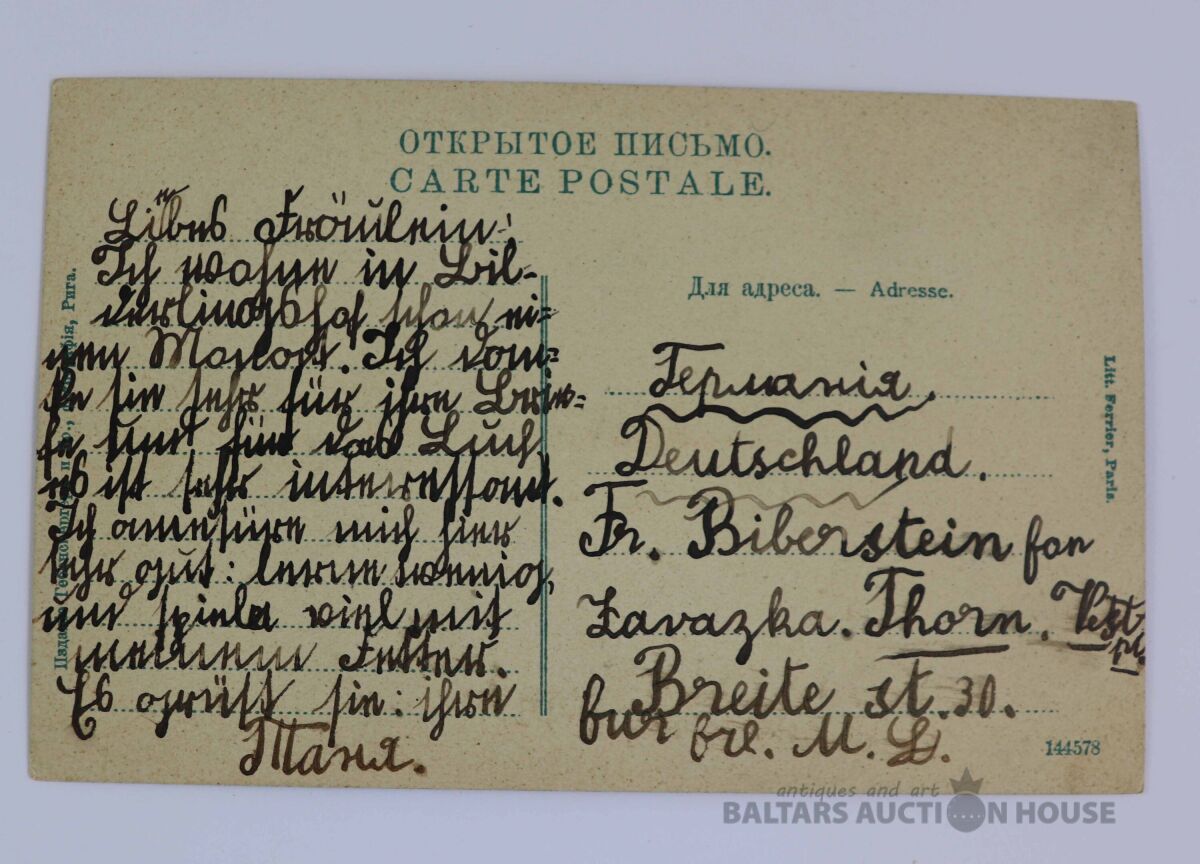 ОТКРЫТОЕ ПИСЬМО.
CARTE POSTALE.
Libes Fräulein!
Ich wohne in Bil-
derlingshof schon ei=
nen Monat. Ich dan=
ke sie sehr für ihre Brie=
fe und für das Buch
es ist sehr interessant.
Ich amusüre mich hier
sehr gut: lerne wenig,
und spiele viel mit
meinem Fetter.
Es grüsst sie: ihre
Таня.
Для адреса. — Adresse.
Германія.
Deutschland.
Fr. Biberstein fon
Zavazka. Thorn. West
pr.
Breite st. 30.
fur frl. M. B.
Рига.
Litt. Ferrier, Paris.
144578
antiques and art
BALTARS AUCTION HOUSE